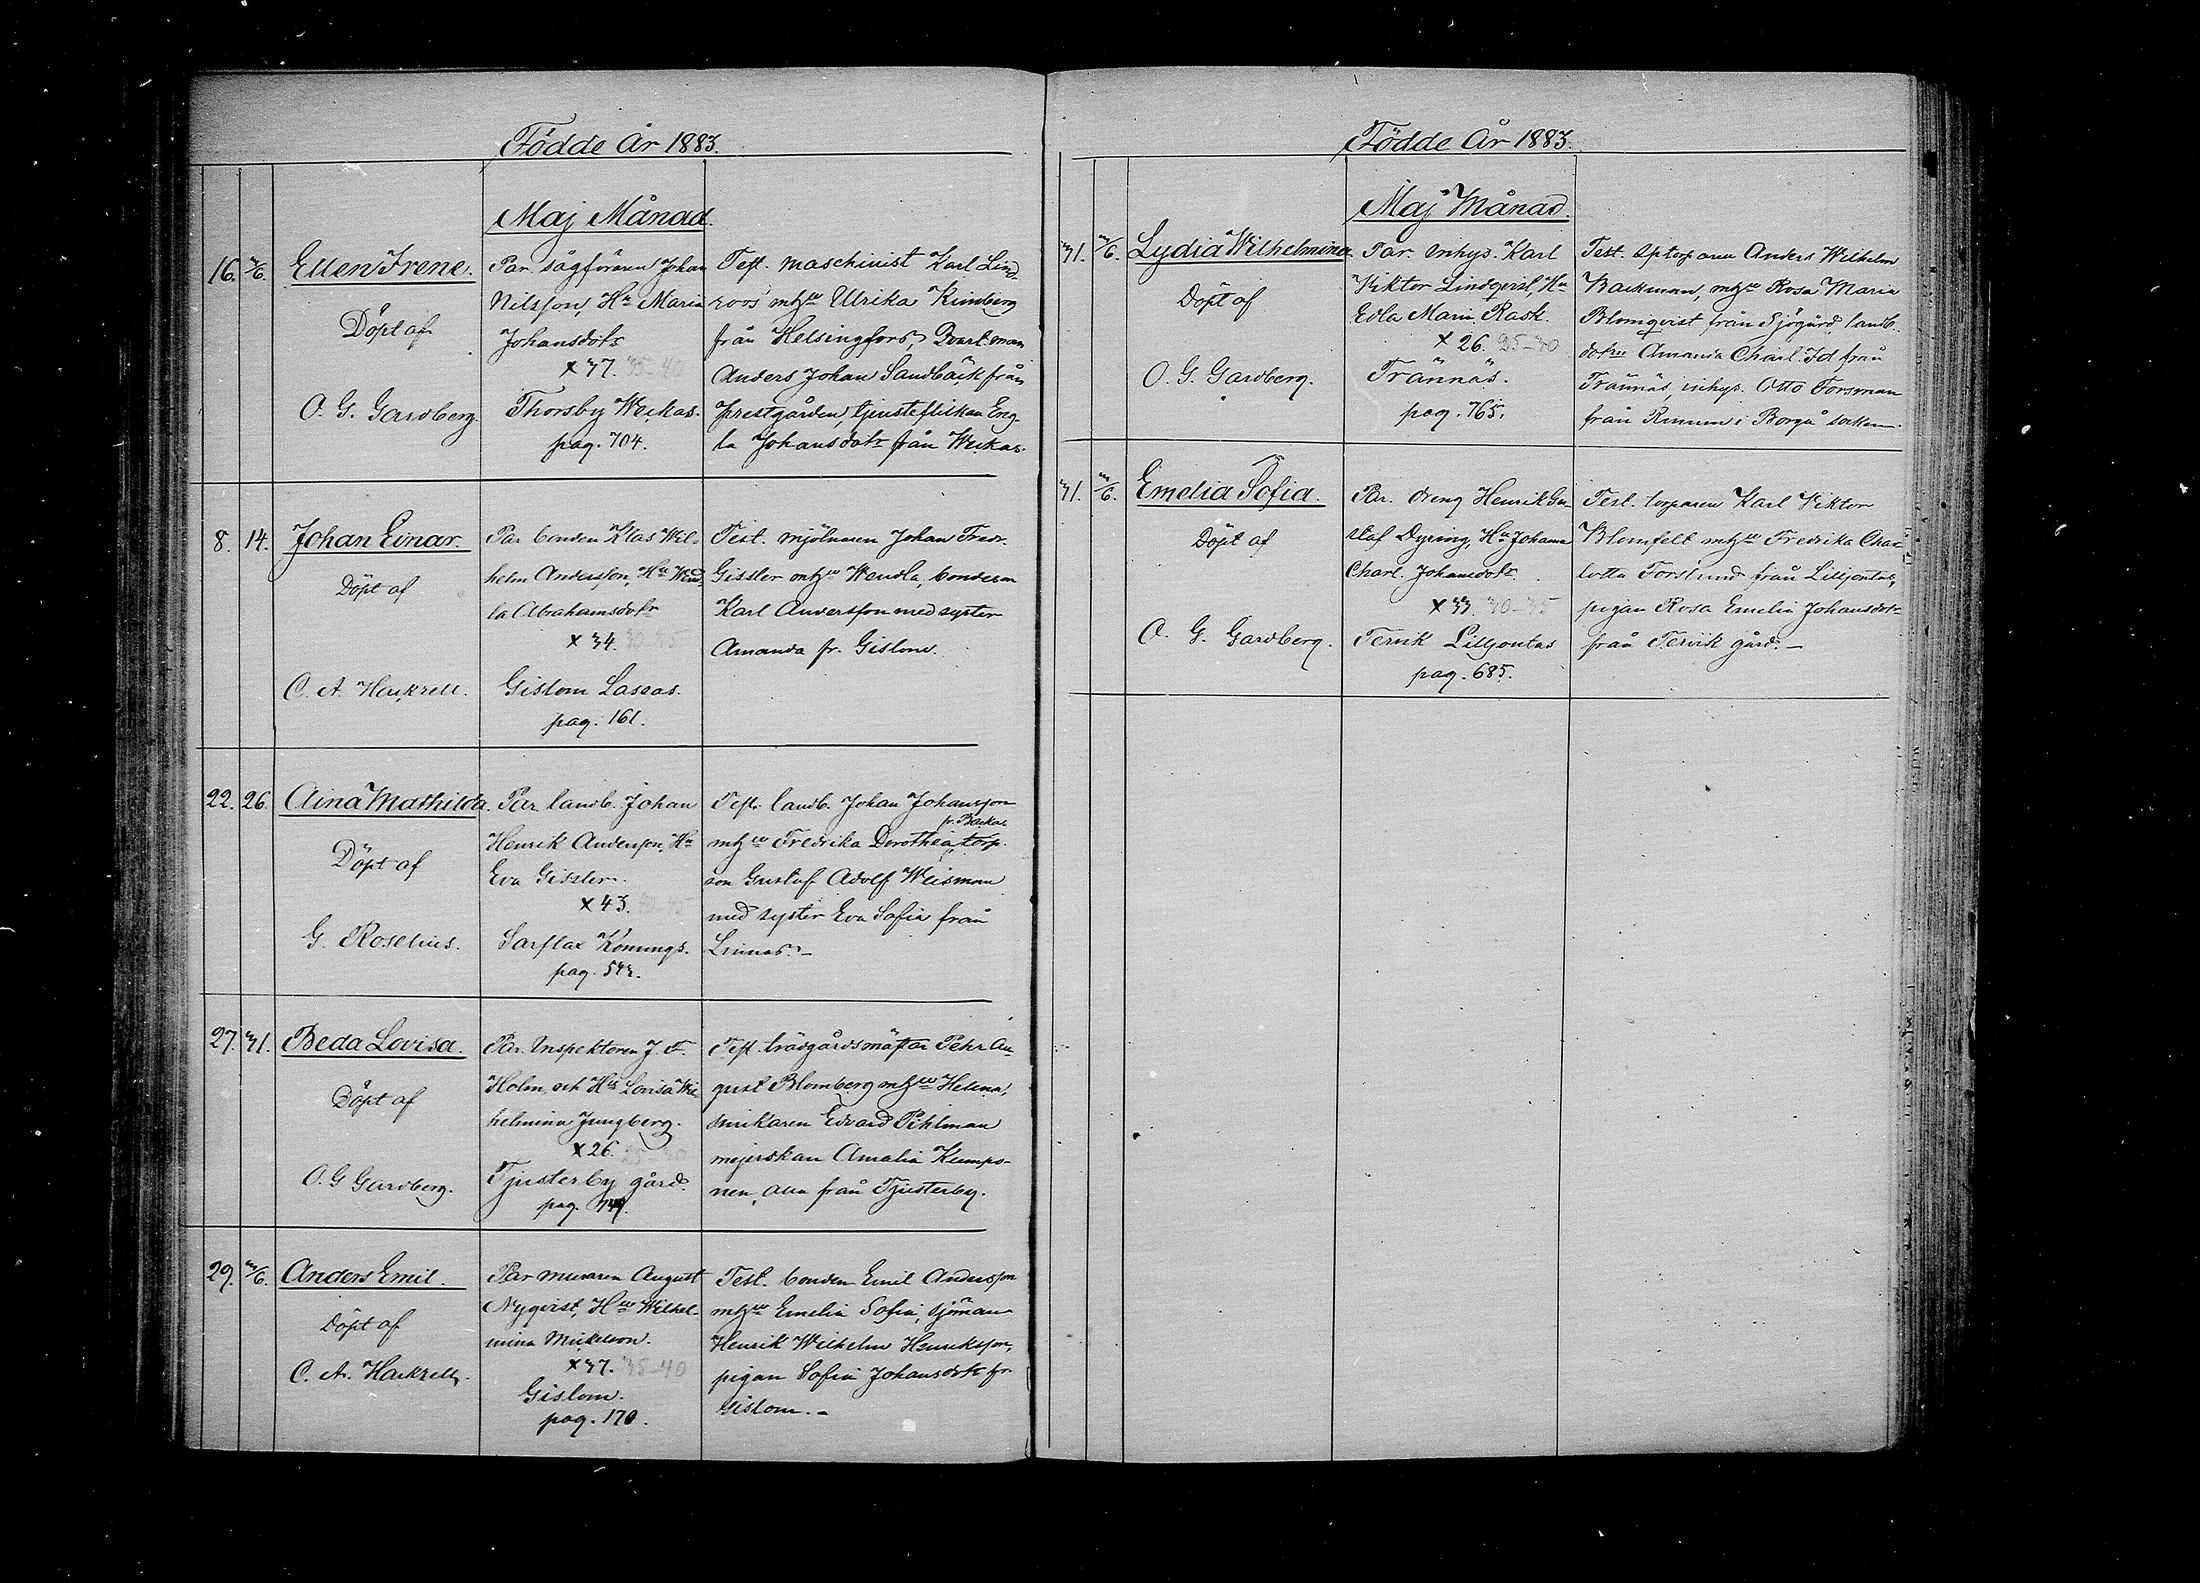 Födde År 1883.
Maj Månad.
16. 3/6. Ellen Irene.
Döpt af
O. G. Gardberg.
Par. sågföraren Johan
Nilsson, Hu Maria
Johansdotr
x 37. 35-40
Thorsby Weckas.
pag. 704.
Test. maschinist Karl Lind-
roos mhu Ulrika Kimberg
från Helsingfors, Qvartman
Anders Johan Sandbäck från
prestgården, tjensteflickan Eng-
la Johansdotr från Weckas.
8. 14. Johan Einar.
Döpt af
C. A. Hackzell.
Par bonden Klas Wil-
helm Andersson, Hu Wend-
la Abrahamsdotr
x 34. 30-35
Gislom Lassas.
pag. 161.
Test. mjölnaren Johan Fredr.
Gissler mhu Wendla, bondeson
Karl Andersson med syster
Amanda fr. Gislom.
22. 26. Aina Mathilda.
Döpt af
G. Roselius.
Par landb. Johan
Henrik Andersson, Hu
Eva Gissler.
x 43.
Sarflax Konungs.
pag. 543.
Test. landb. Johan Johansson
fr. Backas
mhu Fredrika Dorothea, torp.
son Gustaf Adolf Weisman
med syster Eva Sofia från
Linnäs. -
27. 31. Beda Lovisa.
Döpt af
O. G Gardberg.
Par. Inspektoren J. F.
Holm och Hu Lovisa Wil
helmina Jungberg.
x 26. 25-30
Tjusterby gård.
pag.
Test. trädgårdsmästar Pehr Au-
gust Blomberg mhu Helena,
snikaren Edvard Pihlman
mejerskan Amalia Kumpo-
nen, alla från Tjusterby.
29. 3/6. Anders Emil.
Döpt af
C. A. Hackzell.
Par muraren August
Nyqvist, Hu Wilhel-
mina Mickelson.
x 37. 35-40
Gislom.
pag. 170.
Test. bonden Emil Andersson
mhu Emelia Sofia, sjöman
Henrik Wilhelm Henriksson,
pigan Sofia Johansdotr fr
Gislom. -
Födde År 1883.
Maj Månad.
31. 3/6. Lydia Wilhelmina.
Döpt af
O. G. Gardberg.
Par. inhys. Karl
Viktor Lindqvist, Hu
Edla Maria Rask.
x 26. 25-30
Trännäs.
pag. 765.
Test. sptorparen Anders Wilhelm
Backman, mhu Rosa Maria
Blomqvist från Sjögård landb.
dotren Amanda Charl. Id från
Trännäs, inhys. Otto Forsman
från Renum i Borgå socken.
31. 3/6. Emelia Sofia.
Döpt af
O. G. Gardberg.
Par. dreng Henrik Gu-
staf Dyring, Hu Johanna
Charl. Johansdotr
x 33. 30-35
Tervik Liljontas
pag. 685.
Test. torparen Karl Viktor
Blomfelt mhu Fredrika Char-
lotta Forslund från Liljontas,
pigan Rosa Emelia Johansdotr
från Tervik gård. -